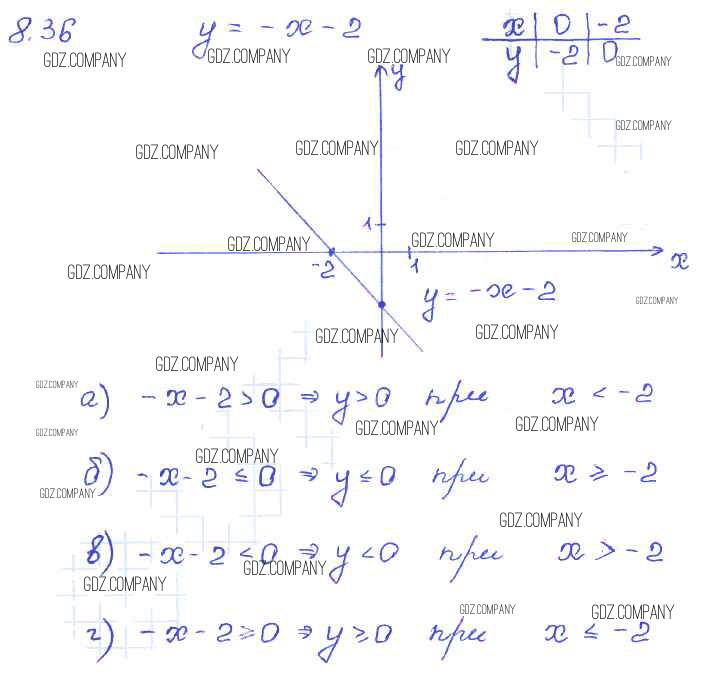 8.36 y = -x - 2 x | 0 | -2
y | -2 | 0
GDZ.COMPANY GDZ.COMPANY GDZ.COMPANY GDZ.COMPANY
y
GDZ.COMPANY
GDZ.COMPANY GDZ.COMPANY GDZ.COMPANY
1
GDZ.COMPANY GDZ.COMPANY GDZ.COMPANY
-2 1 x
GDZ.COMPANY
y = -x - 2
GDZ.COMPANY
GDZ.COMPANY GDZ.COMPANY
GDZ.COMPANY
GDZ.COMPANY
а) -x - 2 > 0 ⇒ y > 0 при x < -2
GDZ.COMPANY GDZ.COMPANY GDZ.COMPANY
GDZ.COMPANY
б) -x - 2 ≤ 0 ⇒ y ≤ 0 при x ≥ -2
GDZ.COMPANY
GDZ.COMPANY
в) -x - 2 < 0 ⇒ y < 0 при x > -2
GDZ.COMPANY
GDZ.COMPANY
GDZ.COMPANY GDZ.COMPANY
г) -x - 2 ≥ 0 ⇒ y ≥ 0 при x ≤ -2